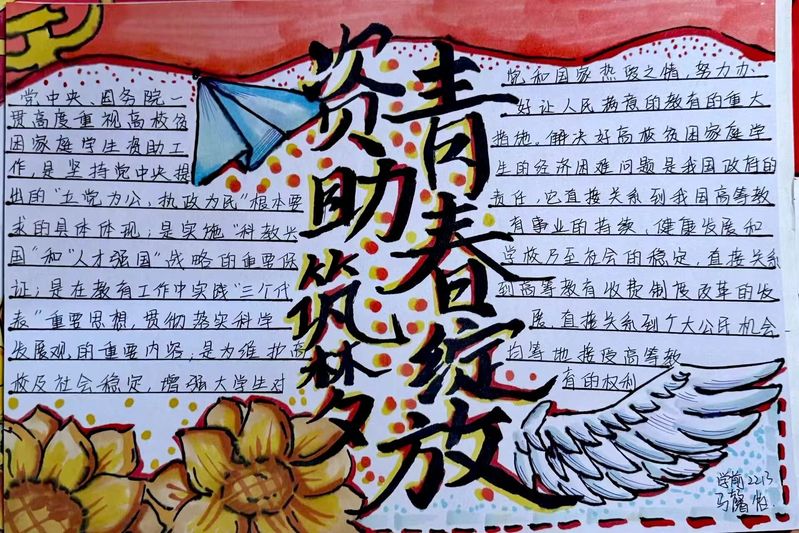 资助筑梦
青春绽放
党中央、国务院一
贯高度重视高校贫
困家庭学生资助工
作，是坚持党中央提
出的“立党为公，执政为民”根本要
求的具体体现；是实施“科教兴
国”和“人才强国”战略的重要保
证；是在教育工作中实践“三个代
表”重要思想，贯彻落实科学
发展观，的重要内容，是为维护高
校及社会稳定，增强大学生对
党和国家热爱之情，努力办
好让人民满意的教育的重大
措施。解决好高校贫困家庭学
生的经济困难问题是我国政府的
责任，它直接关系到我国高等教
育事业的持续、健康发展和
学校乃至社会的稳定，直接关系
到高等教育收费制度改革的发
展，直接关系到广大公民机会
均等地接受高等教
育的权利
学前2213
马馨怡